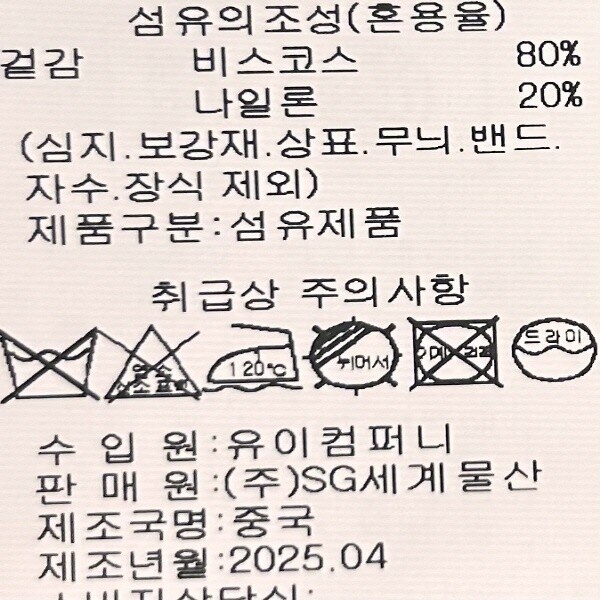 섬유의조성(혼용율)
겉감 비스코스 80%
나일론 20%
(심지.보강재.상표.무늬.밴드.
자수.장식 제외)
제품구분:섬유제품
취급상 주의사항
염소
산소표백
120℃
뉘어서
드라이
수 입 원:유이컴퍼니
판 매 원:(주)SG세계물산
제조국명:중국
제조년월:2025.04